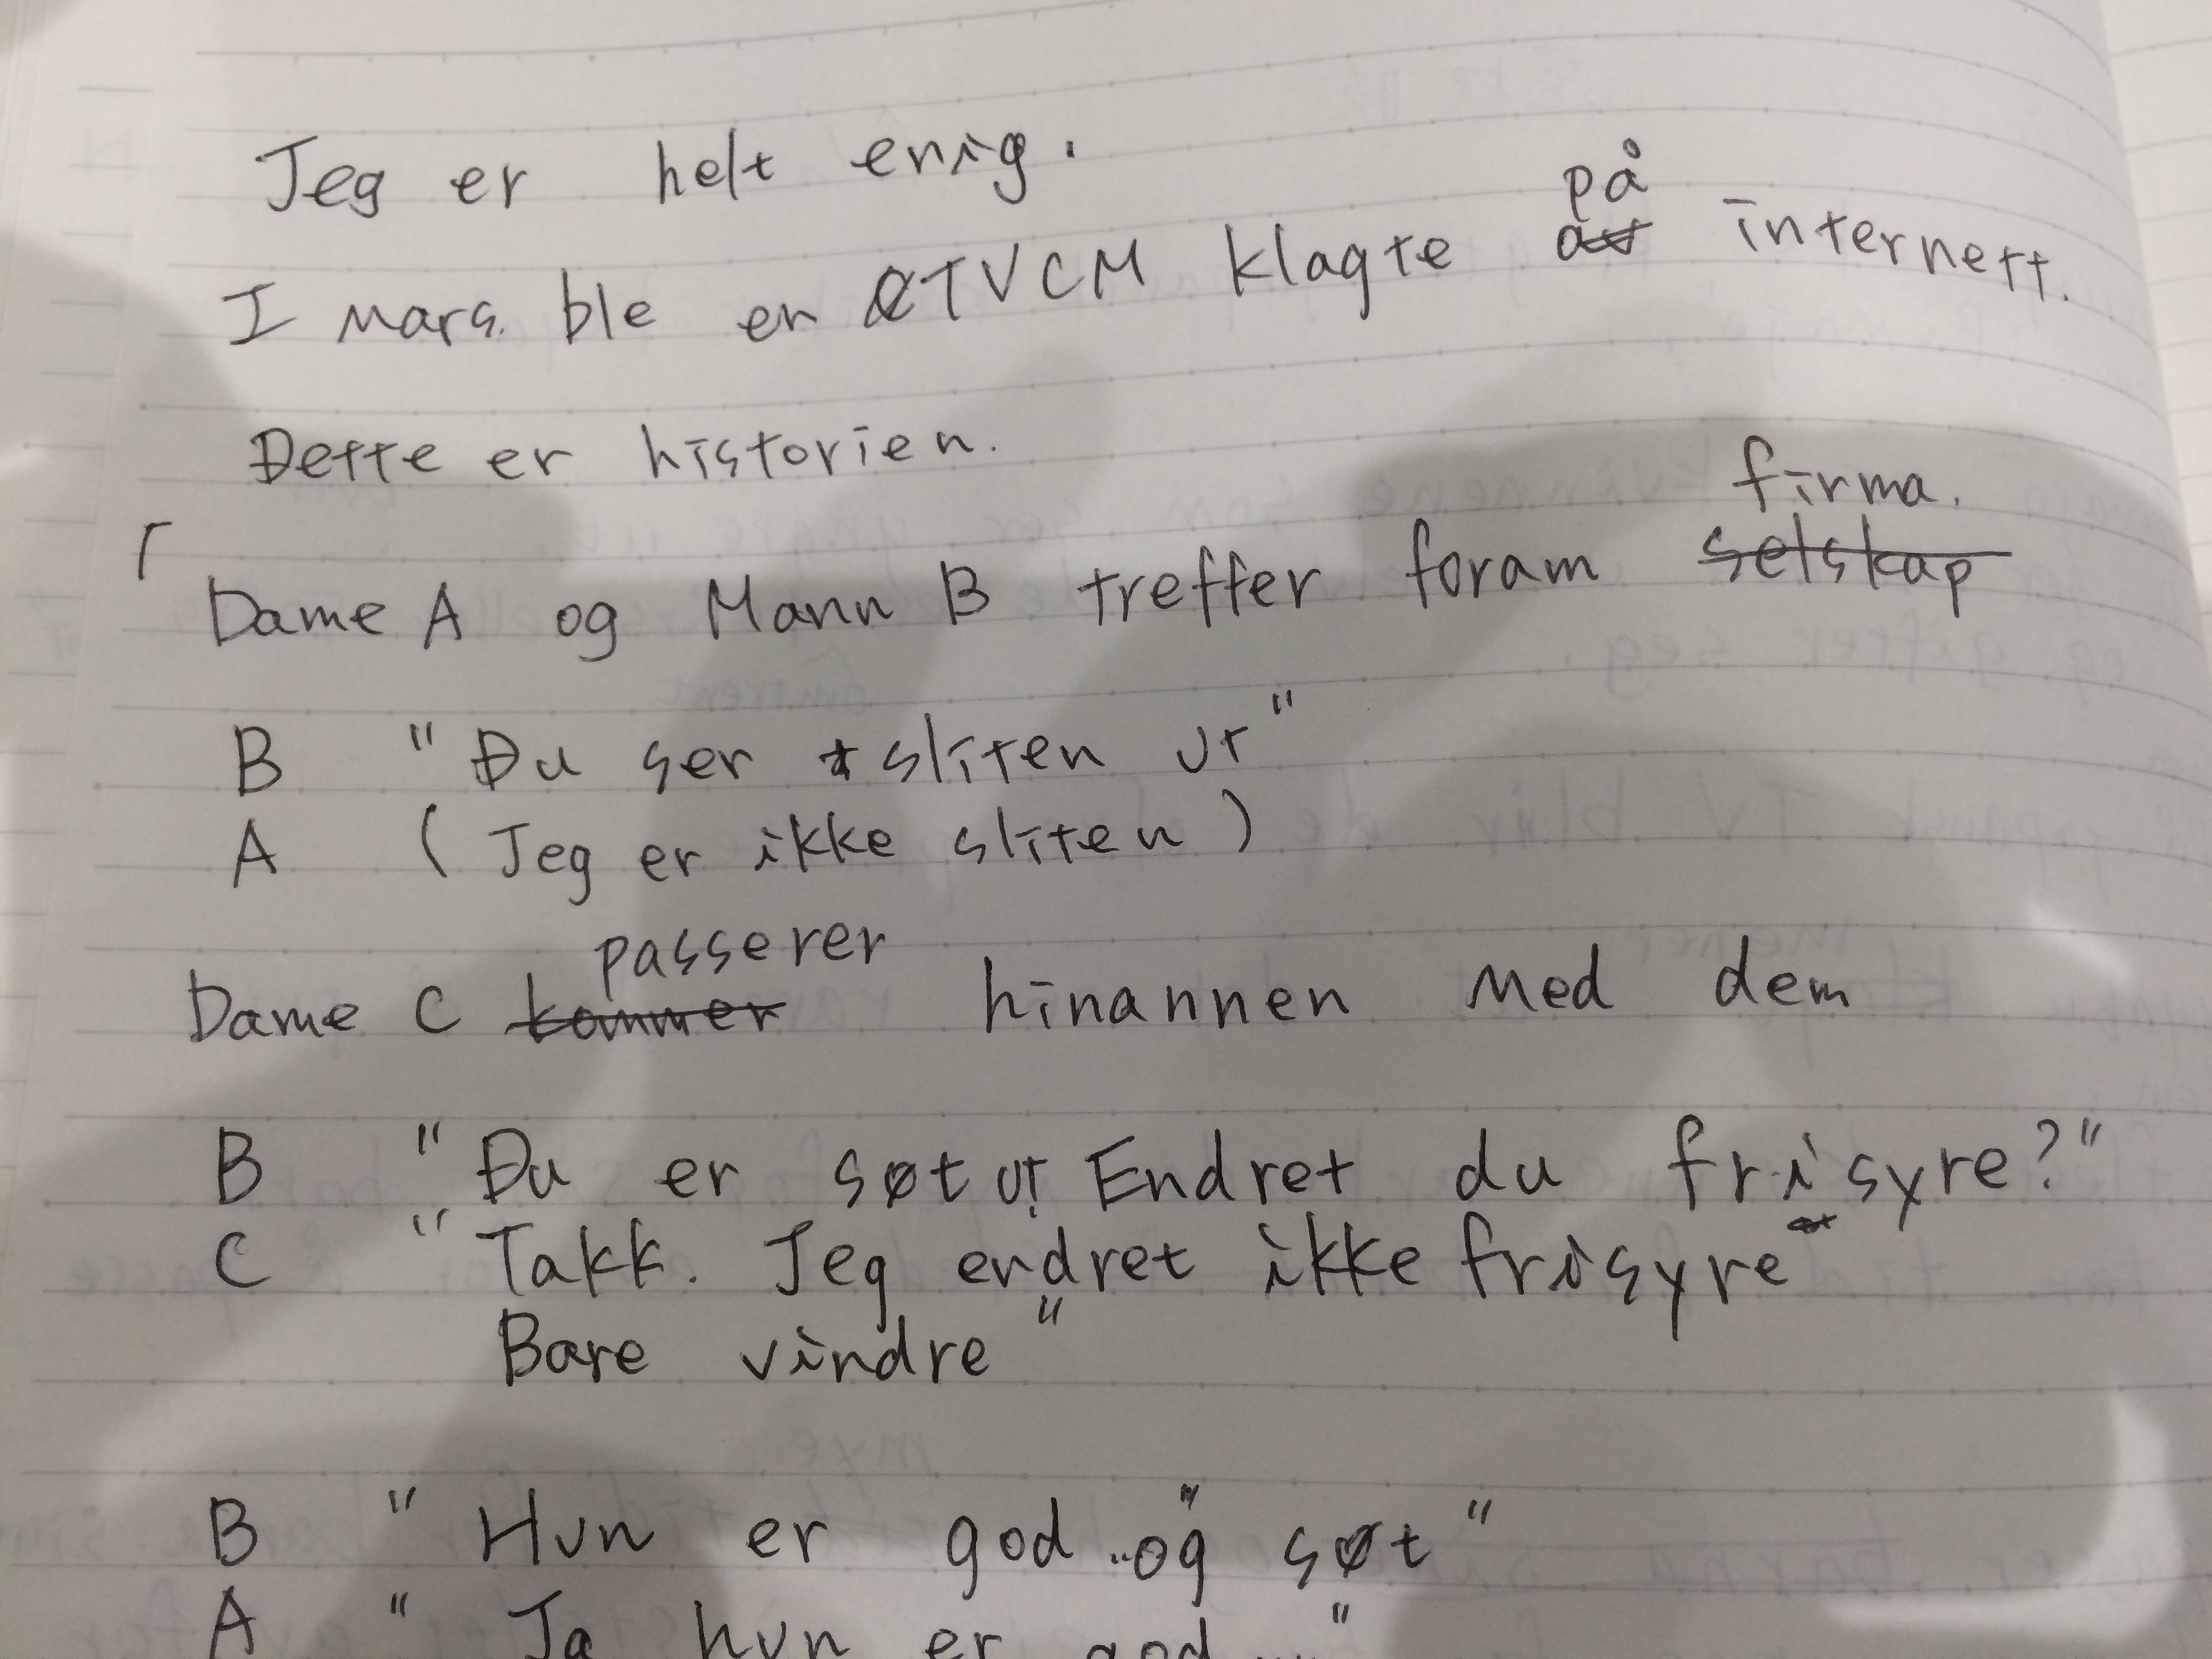 Jeg er helt enig.
på
I mars. ble en TVCM klagte av internett.
Dette er historien.
firma.
「Dame A og Mann B treffer foram selskap
B "Du ser sliten ut"
A (Jeg er ikke sliten)
passerer
Dame C kommer hinannen med dem
B "Du er søt ut Endret du frisyre?"
C "Takk. Jeg endret ikke frisyre
Bare vindre"
B "Hun er god og søt"
A "Ja hun er god..."